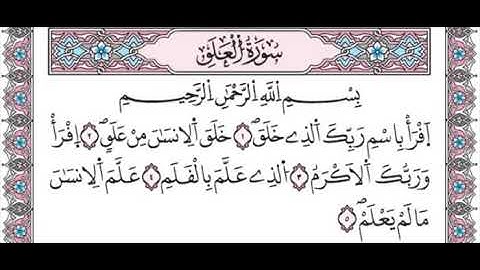 سُورَةُ الْعَلَقِ
بِسْمِ اللَّهِ الرَّحْمَٰنِ الرَّحِيمِ
اِقْرَأْ بِاسْمِ رَبِّكَ الَّذِي خَلَقَۖ ١ خَلَقَ الْاِنْسَانَ مِنْ عَلَقٍۖ ٢ اِقْرَأْ
وَرَبُّكَ الْاَكْرَمُۙ ٣ اَلَّذِي عَلَّمَ بِالْقَلَمِۙ ٤ عَلَّمَ الْاِنْسَانَ
مَا لَمْ يَعْلَمْۖ ٥